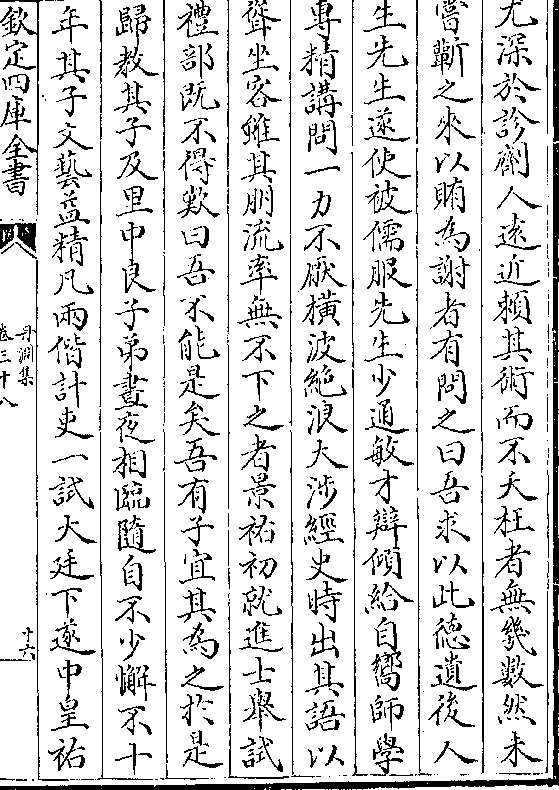 尤深於診劑人逺近頼其術而不夭枉者無㡬數然未
嘗蘄之來以賄為謝者有問之曰吾求以此徳遺後人
生先生遂使被儒服先生少通敏才辯傾給自嚮師學
專精講問一力不厭横波絶浪大渉經史時出其語以
聳坐客雖其朋流率無不下之者景祐初就進士舉試
禮部既不得歎曰吾不能是矣吾有子宜其為之於是
歸教其子及里中良子弟晝夜相臨隨自不少懈不十
年其子文藝益精凡兩偕計吏一試大廷下遂中皇祐
欽定四庫全書
丹淵集
卷三十八
十六